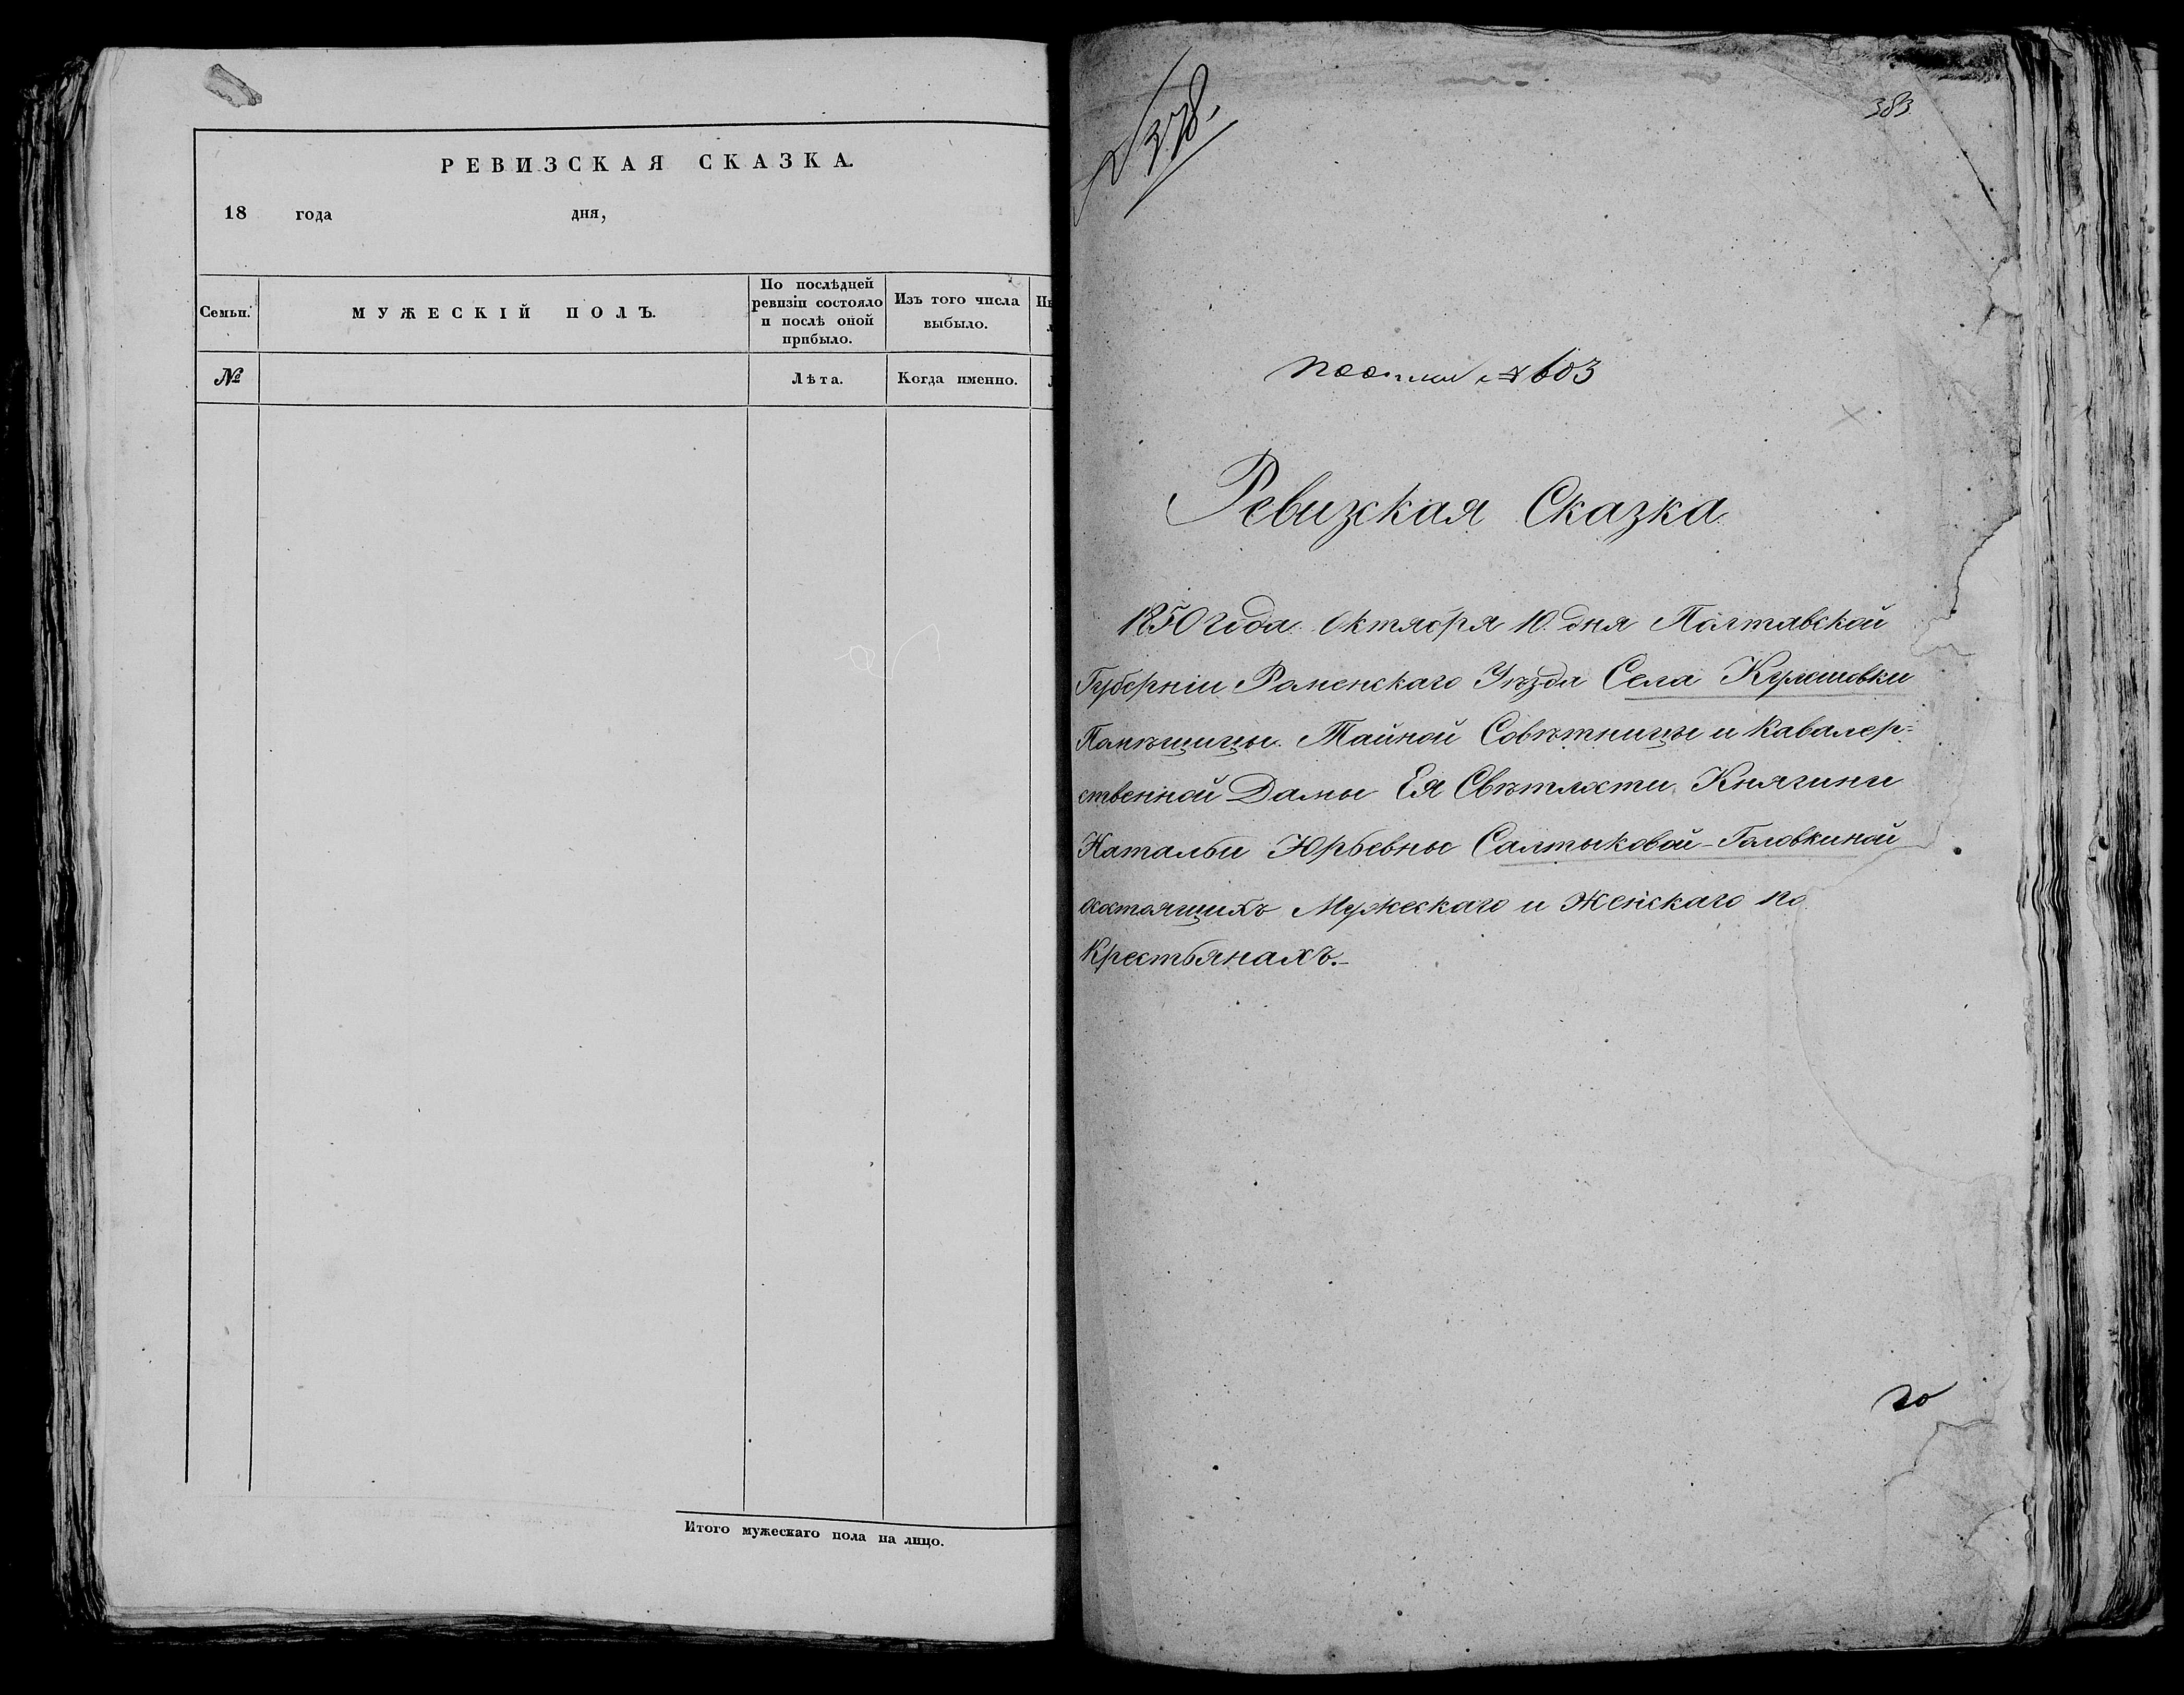 РЕВИЗСКАЯ СКАЗКА.
18 года дня,
Семьи.
МУЖЕСКІЙ ПОЛЪ.
По послѣдней
ревизіи состояло
и послѣ оной
прибыло.
Изъ того числа
выбыло.
№
Лѣта.
Когда именно.
Итого мужескаго пола на лицо.
378.
383.
№ 603
Ревизская Сказка
1850 года Октября 10. дня Полтавской
Губерніи Роменскаго Уѣзда Села Кулешовки
Помѣщицы Тайной Совѣтницы и Кавалер=
ственной Дамы Ея Свѣтлости Княгини
Натальи Юрьевны Салтыковой-Головкиной
состоящихъ Мужескаго и Женскаго по
Крестьянахъ.-
20